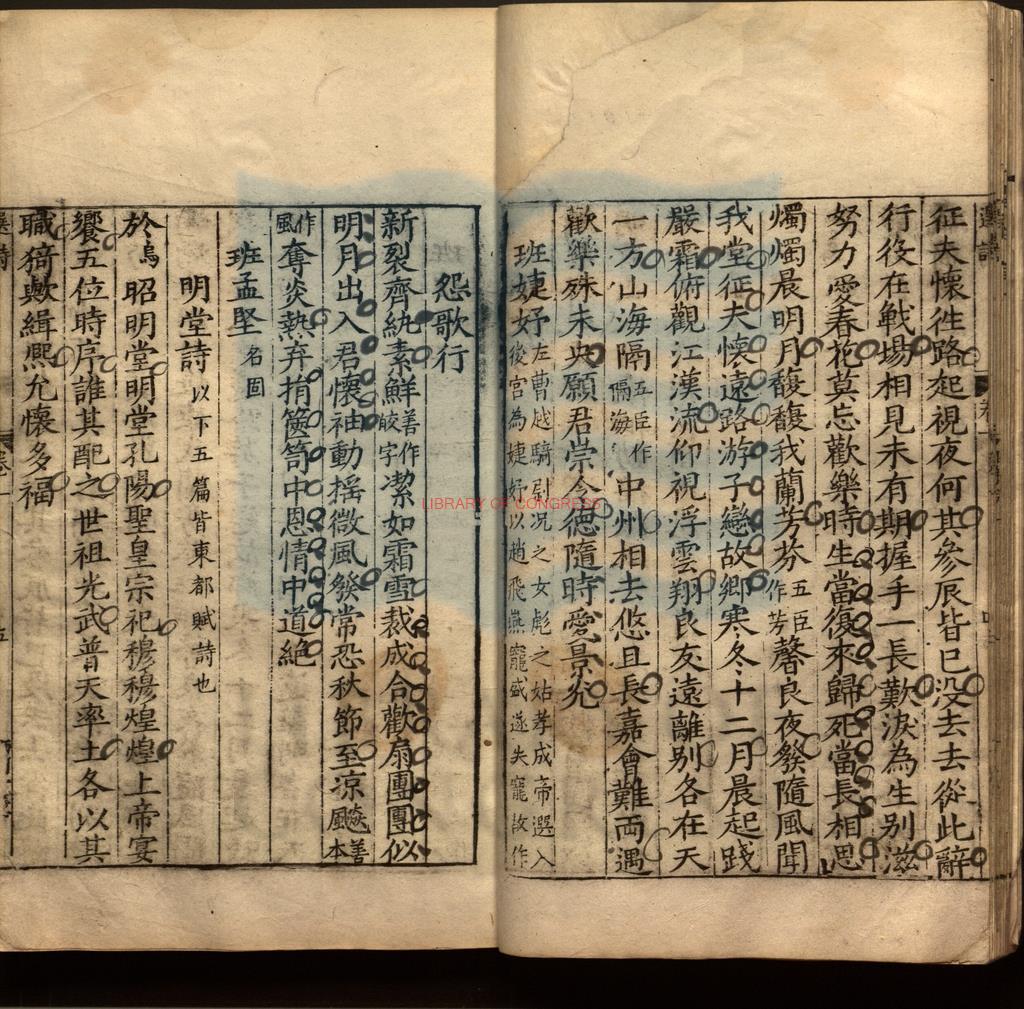 征夫懷徃路起視夜何其參辰皆巳没去去從此辭
行役在戰場相見未有期握手一長歎淚為生別滋
努力愛春花莫忘歡樂時生當復來歸死當長相思
燭燭晨明月馥馥我蘭芳芬五臣作芳馨良夜發隨風聞
我堂征夫懷遠路游子戀故鄉寒冬十二月晨起踐
嚴霜俯觀江漢流仰視浮雲翔良友遠離別各在天
一方山海隔五臣作隔海中州相去悠且長嘉會難両遇
歡樂殊未央願君崇令德隨時愛景光
班婕妤左曹越騎尉况之女彪之姑孝成帝選入後宮為婕妤以趙飛燕寵盛遂失寵故作
怨歌行
新裂齊紈素鮮善作皎字潔如霜雪裁成合歡扇團團似
明月出入君懷袖動揺微風發常恐秋節至凉飇善本
作風奪炎熱弃捐篋笥中恩情中道絶
班孟堅名固
明堂詩以下五篇皆東都賦詩也
於烏昭明堂明堂孔陽聖皇宗祀穆穆煌煌上帝宴
饗五位時序誰其配之世祖光武普天率土各以其
職猗歟緝熙允懷多福
選詩
選詩
五
LIBRARY OF CONGRESS